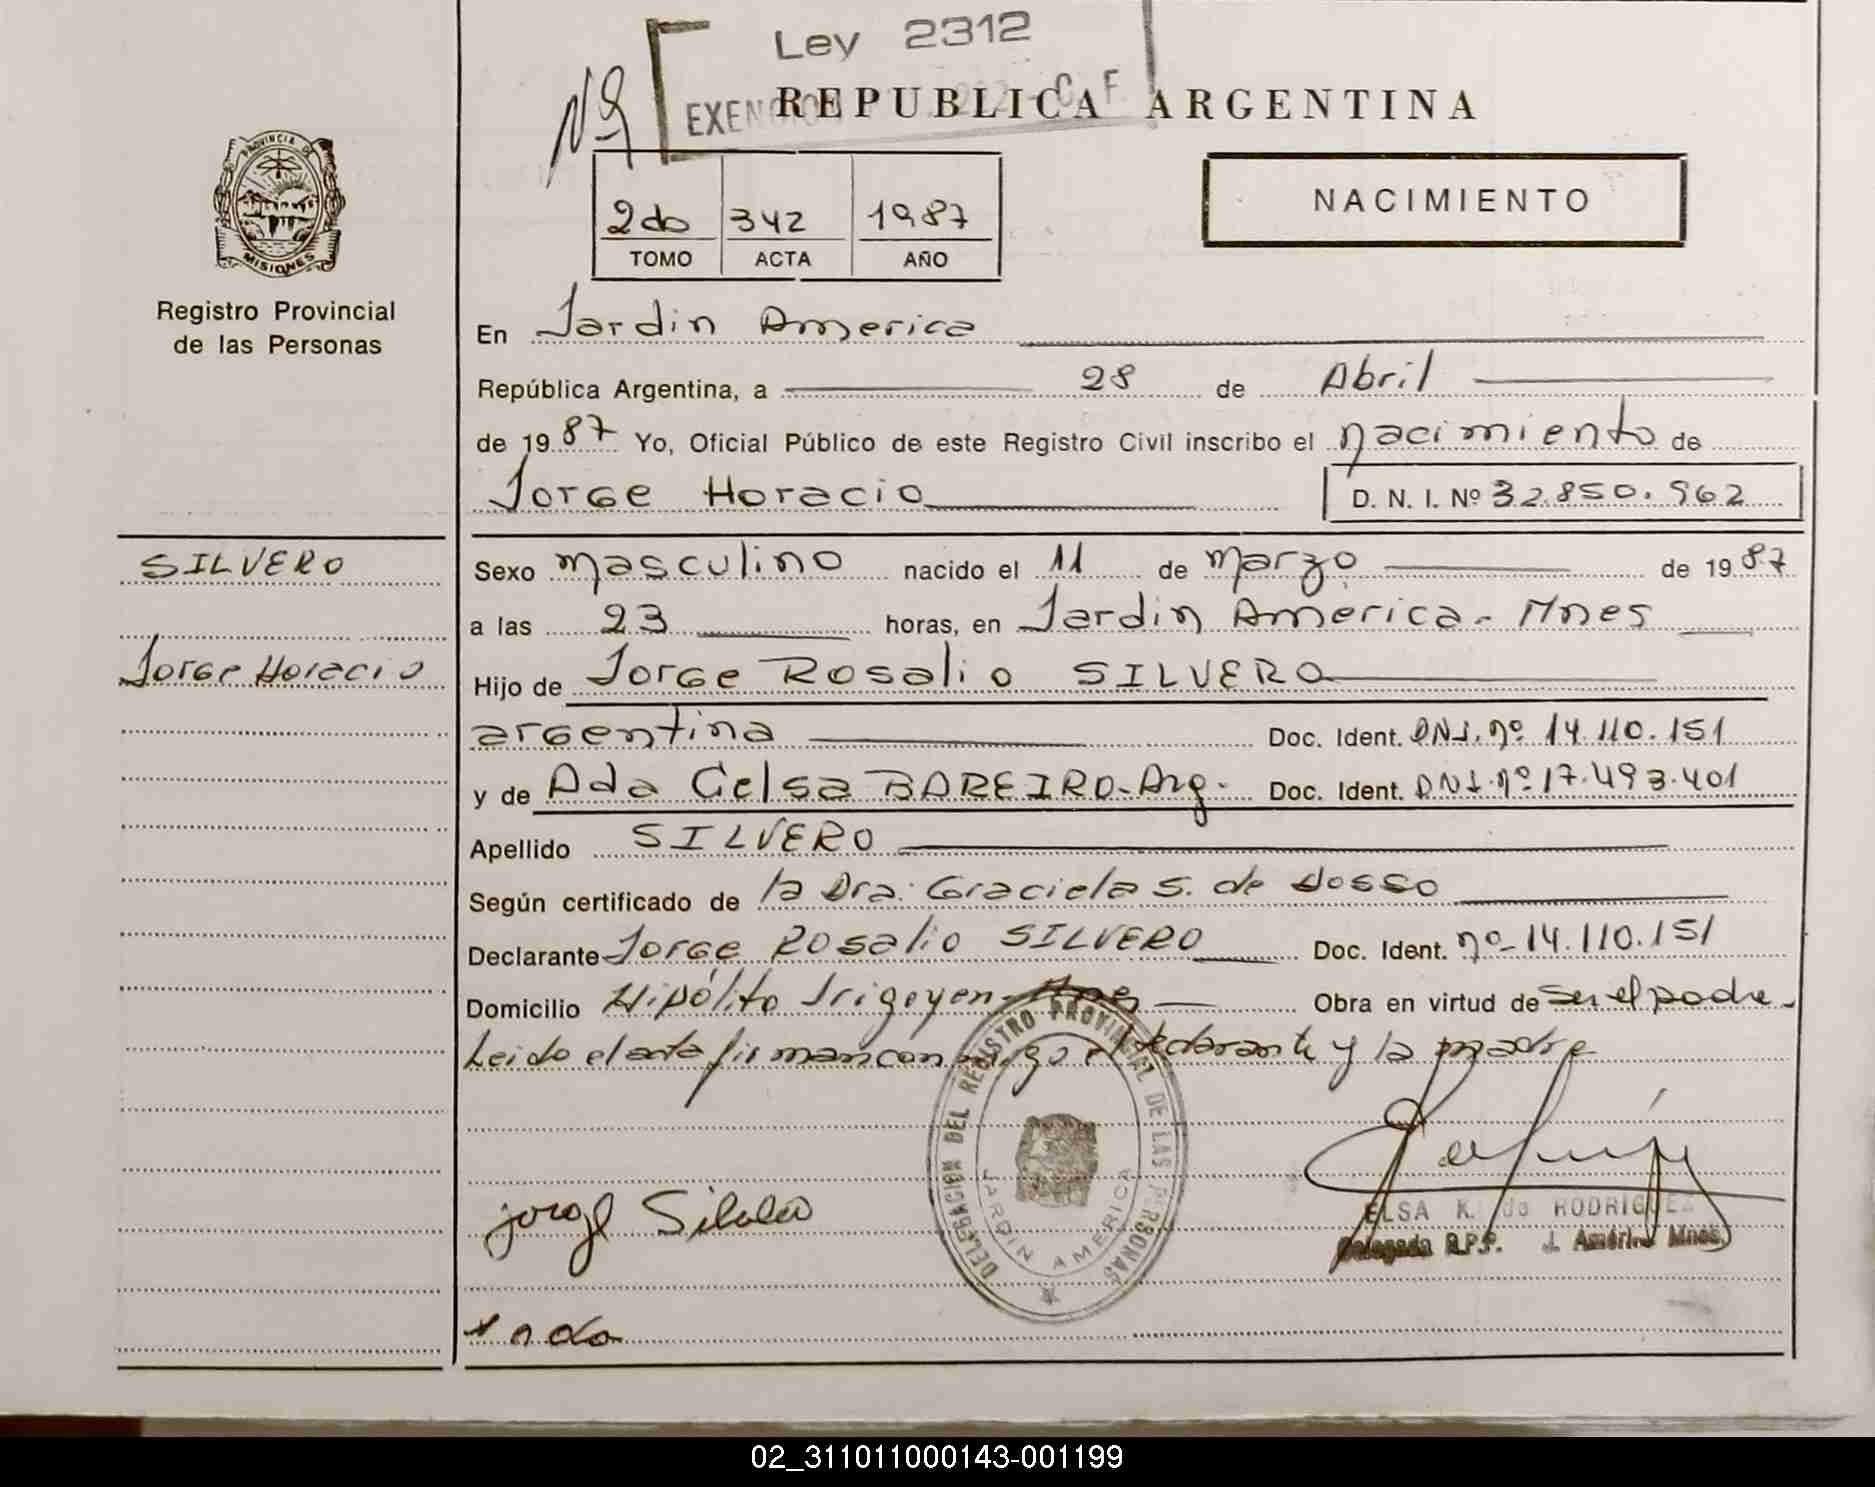 Ley 2312
EXENCION C. F.
Nº
REPUBLICA ARGENTINA
PROVINCIA DE
MISIONES
2do 342 1987
TOMO ACTA AÑO
NACIMIENTO
Registro Provincial
de las Personas
En Jardin America
República Argentina, a 28 de Abril
de 1987 Yo, Oficial Público de este Registro Civil inscribo el nacimiento de
Jorge Horacio D. N. I. Nº 32.850.962
SILVERO
Jorge Horacio
Sexo masculino nacido el 11 de marzo de 1987
a las 23 horas, en Jardin America - Mnes
Hijo de Jorge Rosalio SILVERO
argentina Doc. Ident. DNI. nº 14.110.151
y de Ada Celsa BAREIRO - Arg. Doc. Ident. DNI. nº 17.493.401
Apellido SILVERO
Según certificado de la Dra. Graciela S. de Hosso
Declarante Jorge Rosalio SILVERO Doc. Ident. nº 14.110.151
Domicilio Hipólito Irigoyen - Mnes Obra en virtud de ser el padre
Leido el acta firman conmigo el declarante y la madre
DELEGACION DEL REGISTRO PROVINCIAL DE LAS PERSONAS
JARDIN AMERICA
ELSA K. de RODRIGUEZ
Delegada R.P.P. J. América Mnes.
jorge Silvero
02_311011000143-001199